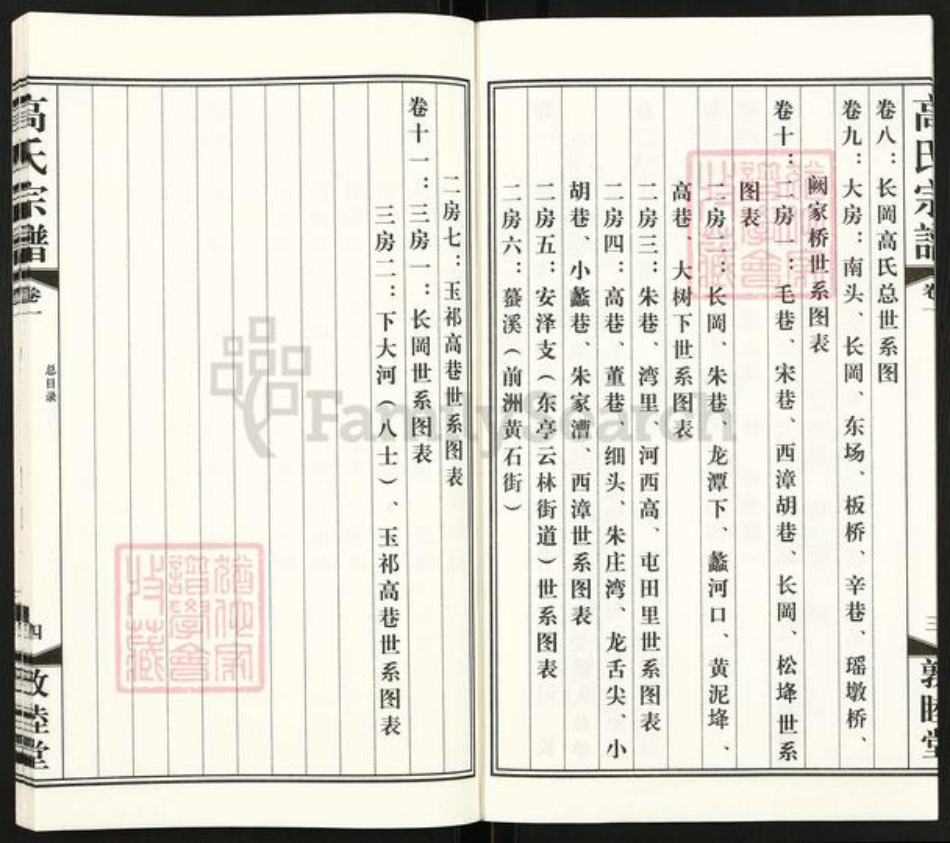 高氏宗谱
卷一
三
敦睦堂
卷八：长岡高氏总世系图
卷九：大房：南头、长岡、东场、板桥、辛巷、瑶墩桥、
阙家桥世系图表
卷十：二房一：毛巷、宋巷、西漳胡巷、长岡、松埄世系
图表
二房二：长岡、朱巷、龙潭下、蠡河口、黄泥埄、
高巷、大树下世系图表
二房三：朱巷、湾里、河西高、屯田里世系图表
二房四：高巷、董巷、细头、朱庄湾、龙舌尖、小
胡巷、小蠡巷、朱家漕、西漳世系图表
二房五：安泽支（东亭云林街道）世系图表
二房六：蓉溪（前洲黄石街）
二房七：玉祁高巷世系图表
卷十一：三房一：长岡世系图表
三房二：下大河（八士）、玉祁高巷世系图表
高氏宗譜
卷一
总目录
四
敦睦堂
FamilySearch
譜學會
收藏